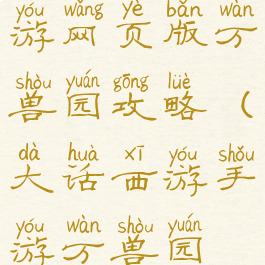 yóu wǎng yè bǎn wàn
游网页版万
shòu yuán gōng lüè
兽园攻略（
dà huà xī yóu shǒu
大话西游手
yóu wàn shòu yuán
游万兽园